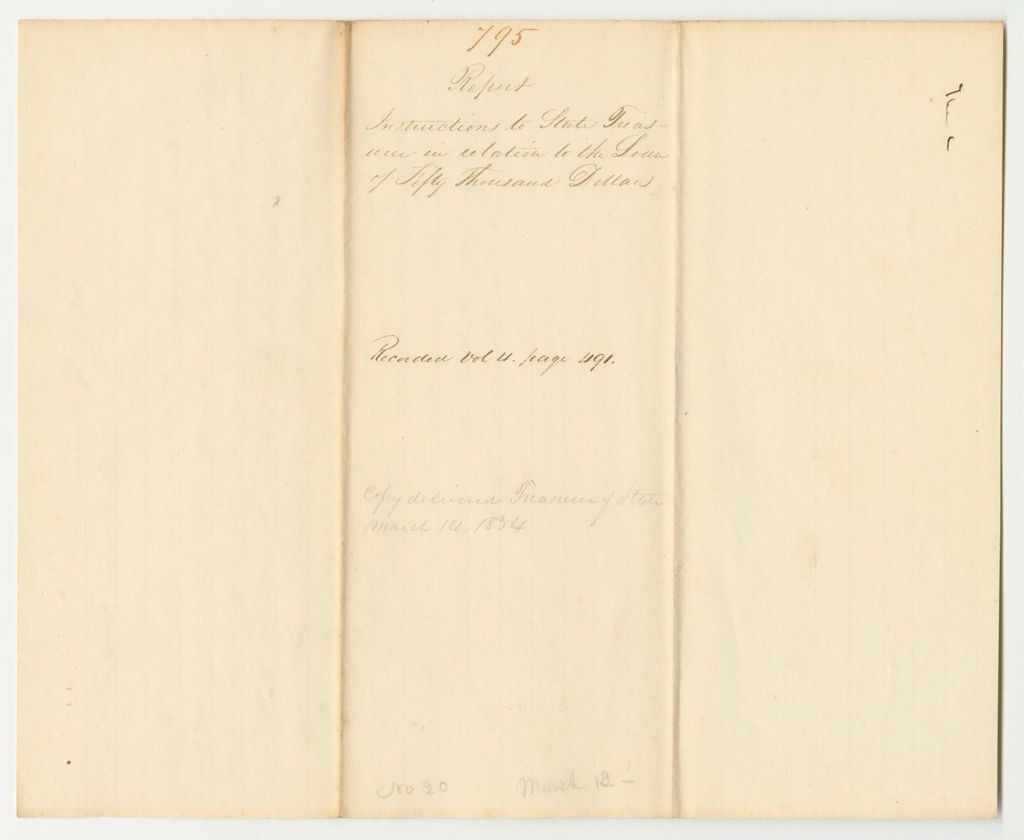 795
Report
Instructions to State Treas-
urer in relation to the Loan
of Fifty Thousand Dollars
Recorded Vol 4. page 491.
Copy delivered Treasurer of State
March 14, 1834
No 20 March 12 -